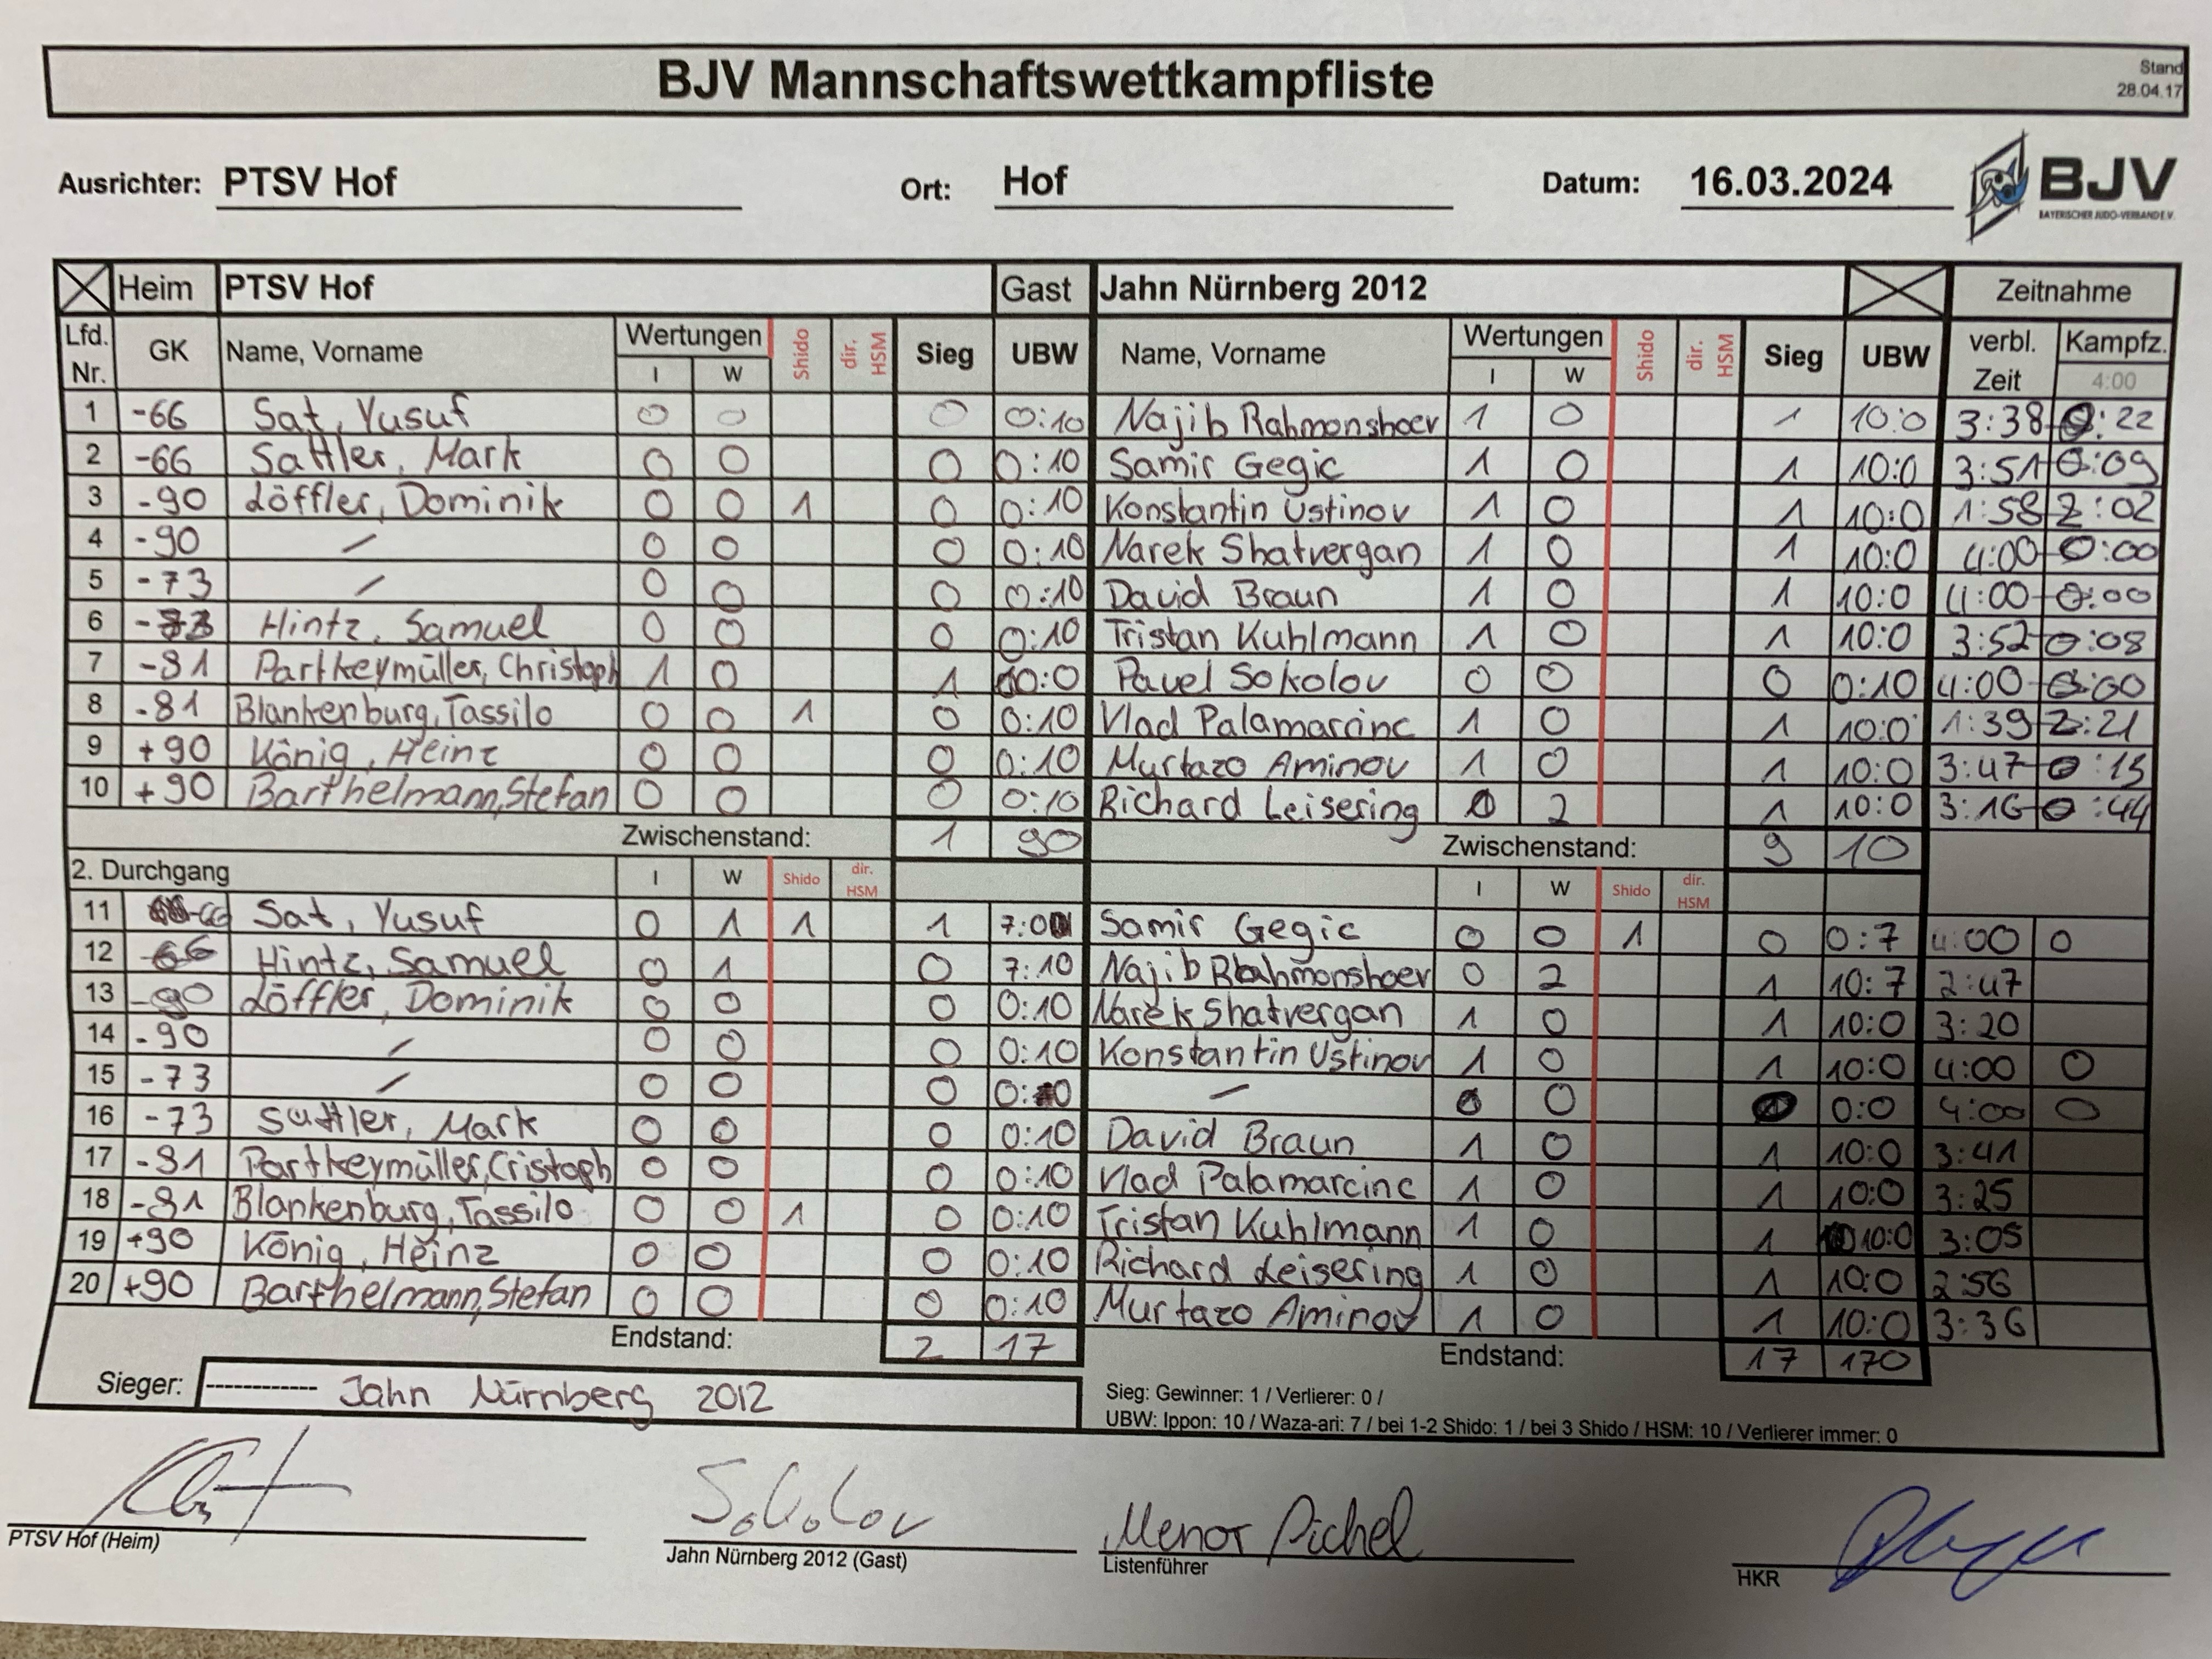 BJV Mannschaftswettkampfliste
Stand
28.04.17
Ausrichter: PTSV Hof Ort: Hof Datum: 16.03.2024
BJV
BAYERISCHER JUDO-VERBAND E.V.
Heim PTSV Hof Gast Jahn Nürnberg 2012 Zeitnahme
Lfd. Nr. GK Name, Vorname Wertungen I W Shido dir. HSM Sieg UBW Name, Vorname Wertungen I W Shido dir. HSM Sieg UBW verbl. Zeit Kampfz. 4:00
1 -66 Sat, Yusuf 0 0 0 0:10 Najib Rahmonshoev 1 0 1 10:0 3:38 0:22
2 -66 Sattler, Mark 0 0 0 0:10 Samir Gegic 1 0 1 10:0 3:51 0:09
3 -90 Löffler, Dominik 0 0 1 0 0:10 Konstantin Ustinov 1 0 1 10:0 1:58 2:02
4 -90 / 0 0 0 0:10 Narek Shatvergan 1 0 1 10:0 4:00 0:00
5 -73 / 0 0 0 0:10 David Braun 1 0 1 10:0 4:00 0:00
6 -73 Hintz, Samuel 0 0 0 0:10 Tristan Kuhlmann 1 0 1 10:0 3:52 0:08
7 -81 Partkeymüller, Christoph 1 0 1 10:0 Pavel Sokolov 0 0 0 0:10 4:00 0:00
8 -81 Blankenburg, Tassilo 0 0 1 0 0:10 Vlad Palamarcinc 1 0 1 10:0 1:39 2:21
9 +90 König, Heinz 0 0 0 0:10 Murtazo Aminov 1 0 1 10:0 3:47 0:13
10 +90 Barthelmann, Stefan 0 0 0 0:10 Richard Leisering 0 2 1 10:0 3:16 0:44
Zwischenstand: 1 90 Zwischenstand: 9 10
2. Durchgang I W Shido dir. HSM I W Shido dir. HSM
11 -66 Sat, Yusuf 0 1 1 1 7:0 Samir Gegic 0 0 1 0 0:7 4:00 0
12 -66 Hintz, Samuel 0 1 0 7:10 Najib Rahmonshoev 0 2 1 10:7 2:47
13 -90 Löffler, Dominik 0 0 0 0:10 Narek Shatvergan 1 0 1 10:0 3:20
14 -90 / 0 0 0 0:10 Konstantin Ustinov 1 0 1 10:0 4:00 0
15 -73 / 0 0 0 0:0 / 0 0 0:0 4:00 0
16 -73 Sattler, Mark 0 0 0 0:10 David Braun 1 0 1 10:0 3:41
17 -81 Partkeymüller, Cristoph 0 0 0 0:10 Vlad Palamarcinc 1 0 1 10:0 3:25
18 -81 Blankenburg, Tassilo 0 0 1 0 0:10 Tristan Kuhlmann 1 0 1 10:0 3:05
19 +90 König, Heinz 0 0 0 0:10 Richard Leisering 1 0 1 10:0 2:56
20 +90 Barthelmann, Stefan 0 0 0 0:10 Murtazo Aminov 1 0 1 10:0 3:36
Endstand: 2 17 Endstand: 17 170
Sieger: ------------ Jahn Nürnberg 2012
Sieg: Gewinner: 1 / Verlierer: 0 /
UBW: Ippon: 10 / Waza-ari: 7 / bei 1-2 Shido: 1 / bei 3 Shido / HSM: 10 / Verlierer immer: 0
Sokolov Menor Pichel
PTSV Hof (Heim) Jahn Nürnberg 2012 (Gast) Listenführer HKR